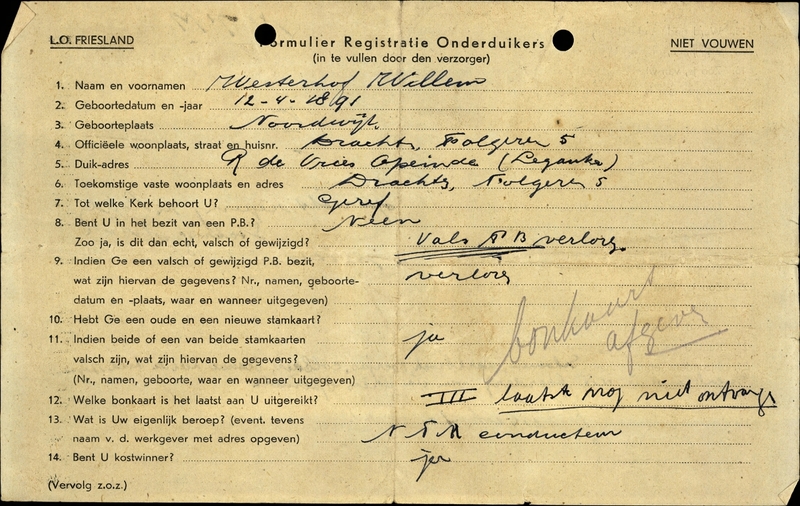 L.O. FRIESLAND
Formulier Registratie Onderduikers
NIET VOUWEN
(in te vullen door den verzorger)
1. Naam en voornamen Westerhof Willem
2. Geboortedatum en -jaar 12-4-1891
3. Geboorteplaats Noordwijk
4. Officiëele woonplaats, straat en huisnr. Dracht, Folgeren 5
5. Duik-adres R de Vries Opeinde
6. Toekomstige vaste woonplaats en adres Drachts, Folgeren 5
7. Tot welke Kerk behoort U? Geref
8. Bent U in het bezit van een P.B.? Neen
Zoo ja, is dit dan echt, valsch of gewijzigd? Vals P B verlorg
9. Indien Ge een valsch of gewijzigd P.B. bezit, verlorg
wat zijn hiervan de gegevens? Nr., namen, geboorte-
datum en -plaats, waar en wanneer uitgegeven)
10. Hebt Ge een oude en een nieuwe stamkaart? bonkaart
11. Indien beide of een van beide stamkaarten ja afgeven
valsch zijn, wat zijn hiervan de gegevens?
(Nr., namen, geboorte, waar en wanneer uitgegeven)
12. Welke bonkaart is het laatst aan U uitgereikt? III laatste nog niet ontvang
13. Wat is Uw eigenlijk beroep? (event. tevens
naam v. d. werkgever met adres opgeven) N T M conducteur
14. Bent U kostwinner? ja
(Vervolg z.o.z.)